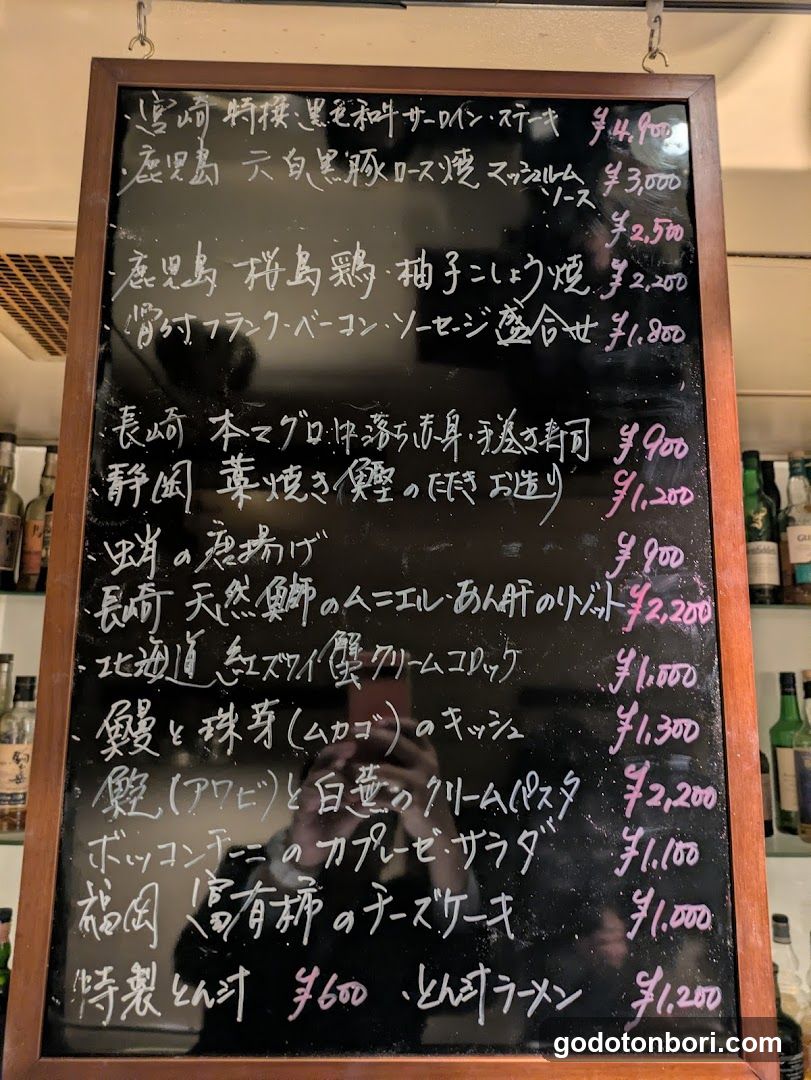 ・宮崎 特撰・黒毛和牛サーロイン・ステーキ ¥4,900
・鹿児島 六白黒豚ロース焼 マッシュルームソース ¥3,000
¥2,500
・鹿児島 桜島鶏・柚子こしょう焼 ¥2,200
・骨付フランク・ベーコン・ソーセージ盛合せ ¥1,800
・長崎 本マグロ・中落ち赤身・手巻き寿司 ¥900
・静岡 藁焼き鰹のたたきお造り ¥1,200
・蛸の唐揚げ ¥900
・長崎 天然鰤のムニエル・あん肝のリゾット ¥2,200
・北海道 紅ズワイ蟹クリームコロッケ ¥1,000
・鰻と珠芽(ムカゴ)のキッシュ ¥1,300
・鮑(アワビ)と白蕪のクリームパスタ ¥2,200
・ボッコンチーニのカプレーゼ・サラダ ¥1,100
・福岡 富有柿のチーズケーキ ¥1,000
・特製とん汁 ¥600 ・とん汁ラーメン ¥1,200
godotonbori.com